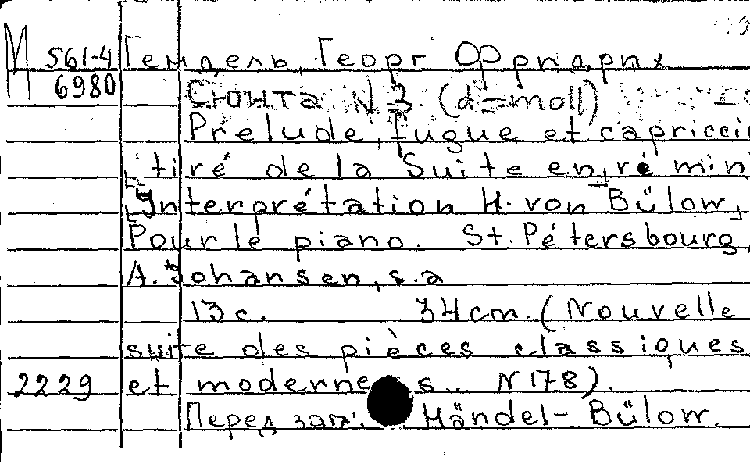 М 561-4 Гендель, Георг Фридрих
6980 Сюита N 3 (d-moll)
Prelude, fugue et capricci
tiré de la Suite en ré min
Interprétation H. von Bülow,
Pour le piano. St. Pétersbourg,
A. Johansen, s.a
13 c. 34 cm. (Nouvelle
suite des pièces classiques
2229 et modernes.. N 178).
Перед заг: Händel- Bülow.